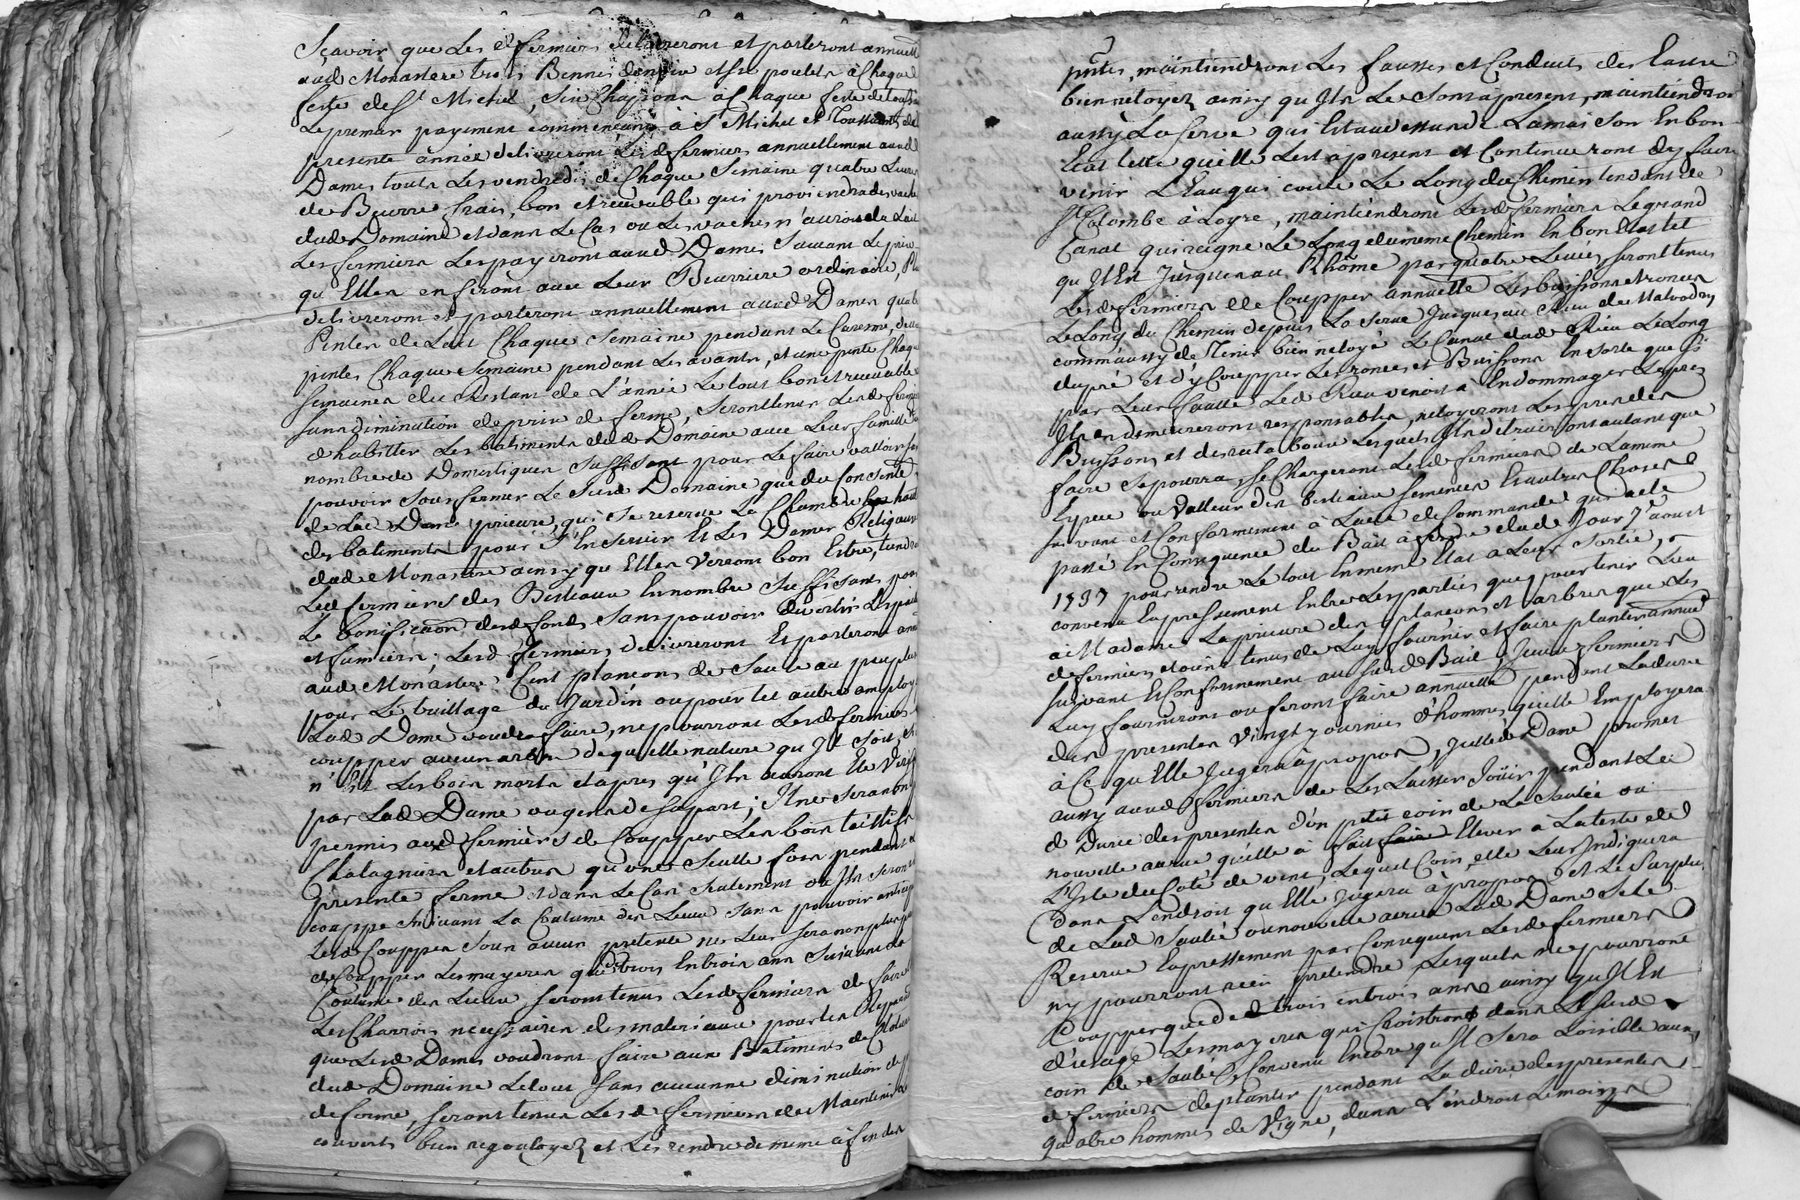 Sçavoir que Les d fermiers delivreront et porteront annuell
aud Monastere trois Bennes et six poulets à Chaque
feste de St Michel, Six Chapons à Chaque feste de Touss
Le premier payement commencera à St Michel et Toussaints de
presente année delivreront Lesd fermiers annuellement aud
Dames touts Les vendredis de Chaque Semaine quatre Livres
de Beurre frais, bon et recevable qui proviendra des vaches
dud Domaine et dans Le Cas ou Les vaches n'auront de Lait
Les fermiers Les payeront aud Dames Suivant Le prix
qu'Elles en feront avec Leur Beurriere ordinaire, Pl
delivreront et porteront annuellement aud Dames quat
Pintes de Lait Chaque Semaine pendant Le Caresme, deux
pintes Chaque Semaine pendant Les avants, et une pinte Chaq
Semaines du Restant de L'année Le tout bon et recevable
Sans diminution de prix de ferme, Seront tenus Lesd fermiers
d'habitter Les batiments dud Domaine avec Leur famille et
nombre de Domestiques Suffisant pour Le faire valloir sans
pouvoir Sousfermer Le Susd Domaine que du Consente
de Lad Dame prieure, qui Se reserve La Chambre haut
des batiments pour S'En Servir Et Les Dames Religieuses
dud Monastere ainsy qu'Elles verront bon Estre, tiendront
Lesd fermiers des Bestiaux En nombre Suffisant pour
La bonification desd fonds Sans pouvoir divertir Les pailles
et fumiers; Lesd fermiers delivreront Et porteront ann
aud Monastere Cent plançons de Saule ou peuplier
pour Le treillage du Jardin ou pour tel autre employ
Lad Dame voudra faire, ne pourront Lesd fermiers
coupper aucun arbre de quelle nature qu'Jl Soit, Si
n'Est Les bois morts et apres qu'Jls auront Eté Vérif
par Lad Dame ou gens de Sa part; Jl ne Sera non
permis aud fermiers de Coupper Les bois taillifs
Chatagniers et autres qu'une Seulle fois pendant
presente ferme et dans Le Cas Seulement ou Jls Seront
couppe Suivant La Coutume des Lieux Sans pouvoir anticiper
Lesd Couppes Sous aucun pretexte ne Leur Sera non plus per
de Coupper Les mayeres que de trois En trois ans Suivant la
Coutume des Lieux, Seront tenus Lesd fermiers de faire
Les Charrois necessaires des materiaux pour Les Repara
que Lesd Dames voudront faire aux Batiments de Cloture
dud Domaine Le tout Sans aucunne diminution de
de ferme, Seront tenus Lesd fermiers de Maintenir Les
couverts bien regouloyez et Les rendre de meme à fin des
pntes, maintiendront Les fausses et Conduits des Eaux
bien netoyez ainsy qu'Jls Le Sont à present, maintiendront
aussy La Serve qui Est au dessus de La maison En bon
Etat telle qu'elle Est à present et Continueront d'y faire
venir L'Eau qui coule Le Long du Chemin tendant de
Ste Colombe à Loyre, maintiendront Lesd fermiers Le grand
Canal qui reigne Le Long du meme Chemin En bon Etat tel
qu'Jl Est Jusques au Rhône par quatre Liviés, seront tenus
Lesd fermiers de Coupper annuellt Les buissons et ronces
Le Long du Chemin depuis La Serve Jusques au Rieu de
comm' aussy de Tenir bien netoyé Le Canal dud Rieu Le Long
du pré et d'y Coupper Les ronces et Buissons En Sorte que Si
par Leur faulte Led Rieu venoit à Endommager Le prés
Jls en demeureront responsables, netoyeront Les prés des
Buissons et des rataboux Lesquels Jls detruiront autant que
faire Se pourra, Se Chargeront Lesd fermiers de La meme
Espece ou valleur des bestiaux Semences Et autres Choses
Suivant et Conformement à Lacte de Commande qui a eté
passé En Consequence du Bail à ferme dud Jour 7e aoust
1737 pour rendre Le tout En meme Etat a Leur Sortie,
convenu Expressement Entre Les parties que pour tenir Lieu
à Madame La prieure des plançons et arbres que Les
d fermiers etoient tenus de Luy fournir et faire planter annuel
Suivant Et Conformement au Susd Bail, Jceux fermiers
Luy fourniront ou feront faire annuellt pendant La durée
des presentes Vingt journées d'hommes, qu'elle Employera
à Ce qu'Elle Jugera à propos, Jcelle Dame promet
aussy auxd fermiers de Les Laisser Joüir pendant Lad
d Durée des presentes d'un petit coin de La Saulée ou
nouvelle aurie qu'elle à fait faire Elever à La teste de
L'Isle du Coté de vent, Lequel Coin, elle Leur Jndiquera
dans L'endroit qu'Elle Jugera à propos, et Le Surplus
de Lad Saulée ou nouvelle aurie Lad Dame Se Le
Reserve Expressement par Consequent Lesd fermiers
ny pourront rien pretendre Lesquels ne pourront
Coupper que de trois en trois ans ainsy qu'Jl Est
d'usage Les mayeres qui Croistront dans Le Susd
coin de Saulée Convenu Encore qu'Jl Sera Loisible aux
d fermiers de planter pendant La durée des presentes
quatre hommes de Vigne, dans L'endroit Le moins